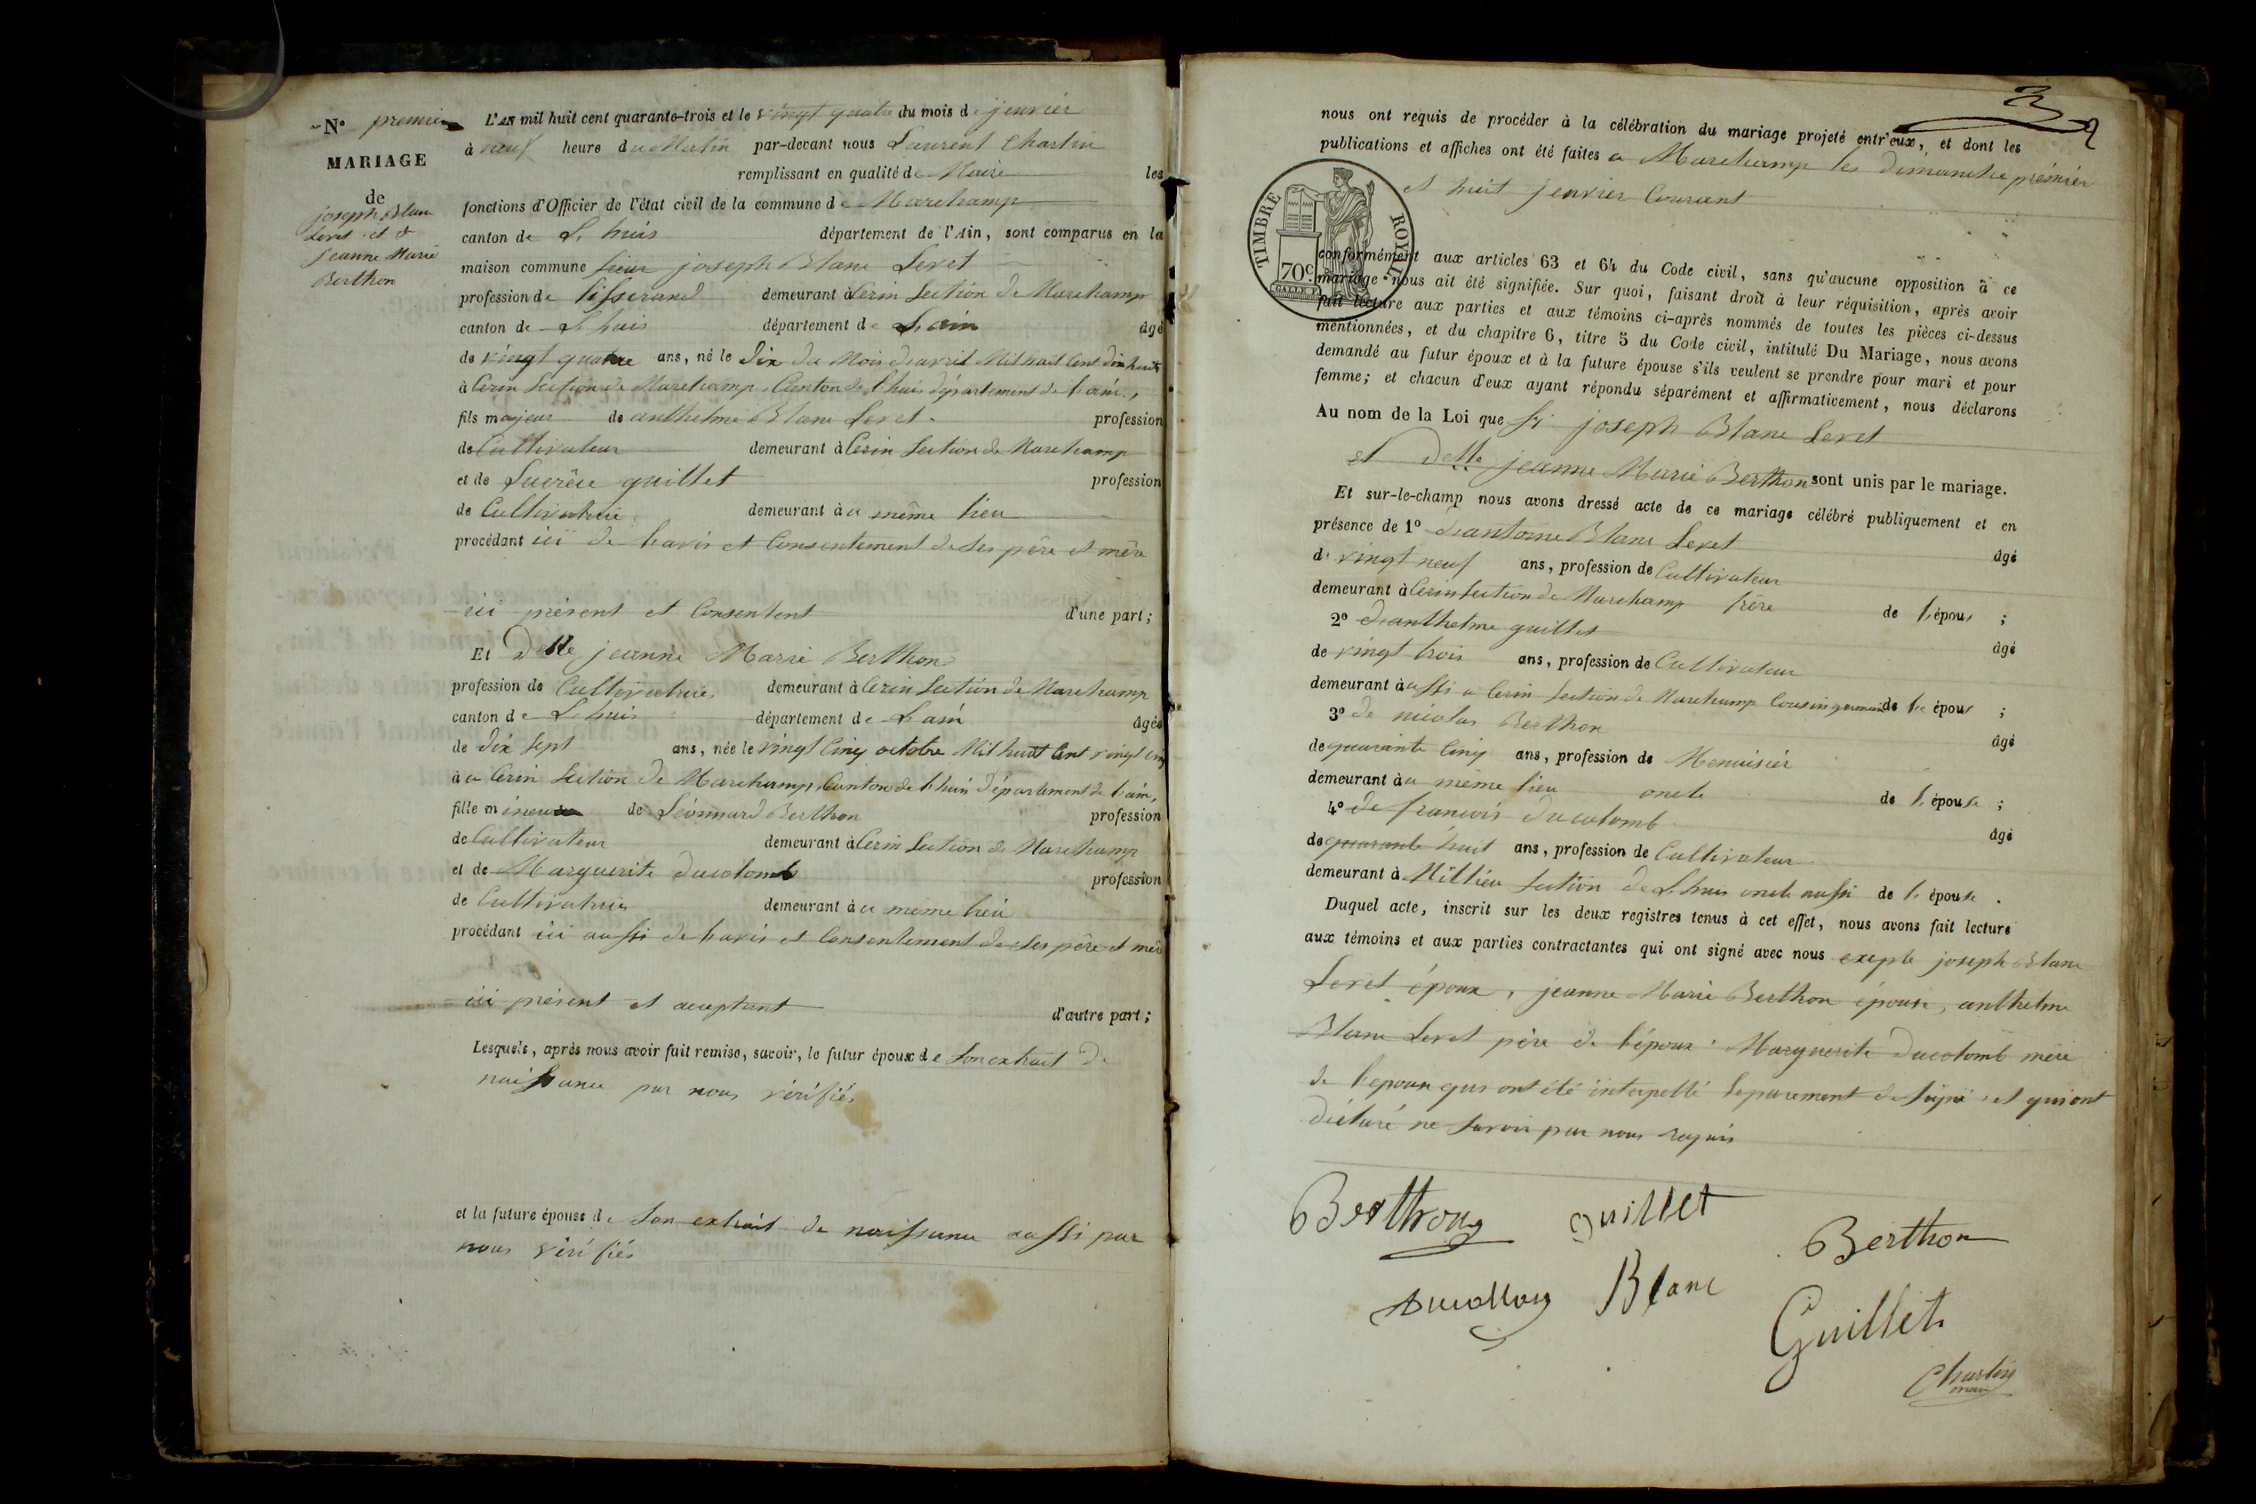 N° premier
MARIAGE
de
joseph Blanc
Leret et de
Jeanne Marie
Berthon
L'AN mil huit cent quarante-trois et le vingt quatre du mois de jenvier
à neuf heure du Matin par-devant nous Laurent Charlin
remplissant en qualité de Maire les
fonctions d'Officier de l'état civil de la commune de Marchamp
canton de L huis département de l'Ain, sont comparus en la
maison commune sieur joseph Blanc Leret
profession de tisserand demeurant à Cerin Section de Marchamp
canton de L huis département de L ain âgé
de vingt quatre ans, né le dix du Mois d'avril Mil huit Cent dix huit
à Cerin Section de Marchamp, Canton de l'huis département de l'ain,
fils majeur de anthelme Blanc Leret profession
de Cultivateur demeurant à Cerin Section de Marchamp
et de Lucrèce guillet profession
de Cultivatrice demeurant à a même lieu
procédant ici de l'avis et Consentement de ses père et mère
ici présent et Consentent d'une part;
Et Delle jeanne Marie Berthon
profession de Cultivatrice demeurant à Cerin Section de Marchamp
canton de L huis département de L ain âgée
de dix sept ans, née le vingt Cinq octobre Mil huit Cent vingt cinq
à a Cerin Section de Marchamp, Canton de l'huis département de l'ain,
fille mineure de Léonnard Berthon profession
de Cultivateur demeurant à Cerin Section de Marchamp
et de Marguerite ducolomb profession
de Cultivatrice demeurant à a même lieu
procédant ici aussi de l'avis et Consentement de ses père et mère
ici présent et acceptant d'autre part;
Lesquels, après nous avoir fait remise, savoir, le futur époux de Son extrait de
naissance par nous vérifiés
et la future épouse de Son extrait de naissance aussi par
nous vérifiés
3
2
nous ont requis de procéder à la célébration du mariage projeté entr'eux, et dont les
publications et affiches ont été faites a Marchamp les dimanche prémier
et huit jenvier Courant
TIMBRE ROYAL
70c
conformément aux articles 63 et 64 du Code civil, sans qu'aucune opposition à ce
mariage nous ait été signifiée. Sur quoi, faisant droit à leur réquisition, après avoir
fait lecture aux parties et aux témoins ci-après nommés de toutes les pièces ci-dessus
mentionnées, et du chapitre 6, titre 5 du Code civil, intitulé Du Mariage, nous avons
demandé au futur époux et à la future épouse s'ils veulent se prendre pour mari et pour
femme; et chacun d'eux ayant répondu séparément et affirmativement, nous déclarons
Au nom de la Loi que Sr joseph Blanc Leret
et Delle jeanne Marie Berthon sont unis par le mariage.
Et sur-le-champ nous avons dressé acte de ce mariage célébré publiquement et en
présence de 1° d'antoine Blanc Leret âgé
de vingt neuf ans, profession de Cultivateur
demeurant à Cerin Section de Marchamp frère de l'époux ;
2° d'anthelme guillet âgé
de vingt trois ans, profession de Cultivateur
demeurant à aussi a Cerin Section de Marchamp Cousin germain de l' époux ;
3° de nicolas Berthon âgé
de quarante Cinq ans, profession de Menuisier
demeurant à a même lieu oncle de l'épouse ;
4° de francois ducolomb âgé
de quarante huit ans, profession de Cultivateur
demeurant à Millieu Section de L huis oncle aussi de l'épouse .
Duquel acte, inscrit sur les deux registres tenus à cet effet, nous avons fait lecture
aux témoins et aux parties contractantes qui ont signé avec nous exepté joseph Blanc
Leret époux, jeanne Marie Berthon épouse, anthelme
Blanc Leret père de l'époux Marguerite ducolomb mère
de l'epouse qui ont été interpellé Séparement de signé et qui ont
déclaré ne savoir par nous requis
Berthon guillet
Berthon
Blanc
Guillet
Charlin
maire